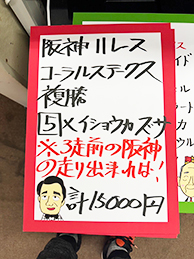 阪神11レース
コーラルステークス
複勝
5メイショウカズサ
※3走前の阪神
の走り出来れば!
計15000円